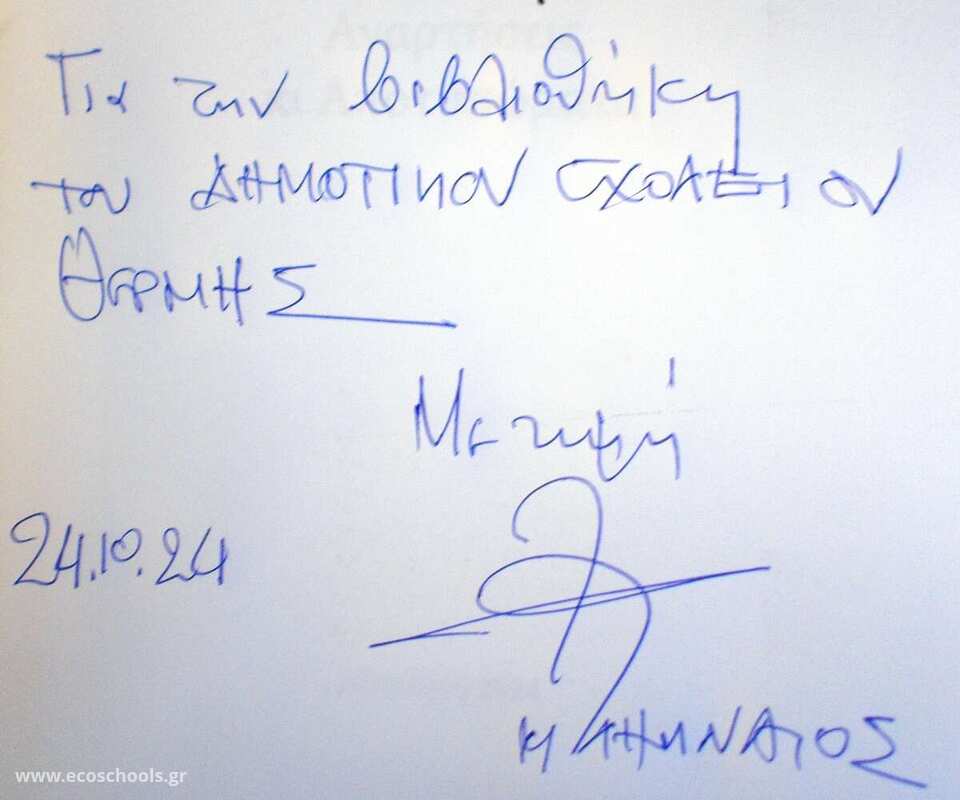 Για την βιβλιοθήκη
του ΔΗΜΟΤΙΚΟΥ ΣΧΟΛΕΙΟΥ
ΘΕΡΜΗΣ
Με τιμή
24.10.24
ΑΘΗΝΑΙΟΣ
www.ecoschools.gr